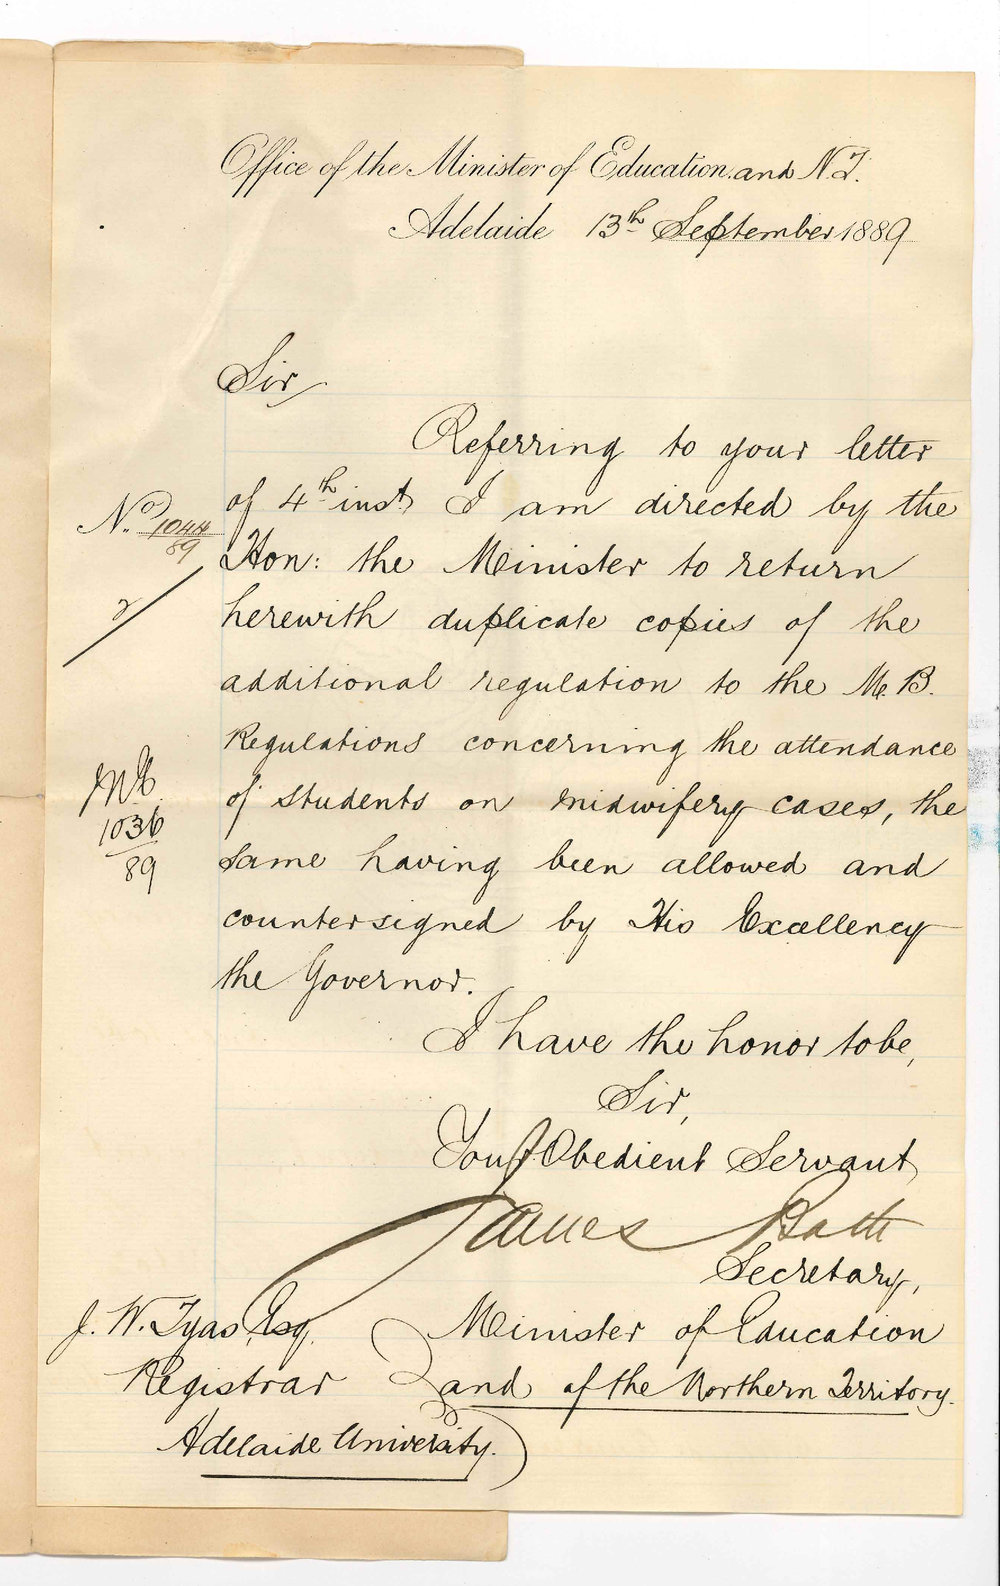 Office of the Minister of Education and N.T.
Adelaide 13th September 1889
Sir
Referring to your letter
of 4th inst. I am directed by the
No. 1044
89
Hon: the Minister to return
herewith duplicate copies of the
additional regulation to the M.B.
Regulations concerning the attendance
of students on midwifery cases, the
1036
89
same having been allowed and
countersigned by His Excellency
the Governor.
I have the honor to be,
Sir,
Your Obedient Servant
James Bath
Secretary,
J. W. Tyas, Esq.
Minister of Education
Registrar
and of the Northern Territory.
Adelaide University.